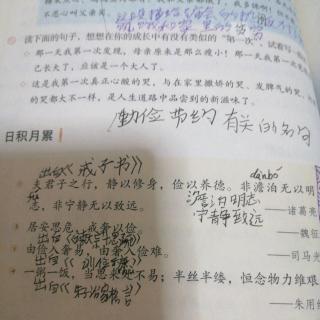 读下面的句子，想想在你的成长中有没有类似的"第一次"，试着写
◇ 那一天我第一次发现，母亲原来是那么瘦小！那一天我
已长大了，应该是一个大人了。
◇ 这是我第一次真正心酸的哭，与在家里撒娇的哭、发脾气的哭、
的哭都大不一样，是人生道路中品尝到的新滋味了。
勤俭节约 有关的名句
日积月累
出自《戒子书》
夫君子之行，静以修身，俭以养德。非澹泊无以明
志，非宁静无以致远。
澹泊明志
宁静致远
——诸葛亮
居安思危，戒奢以俭
——魏征
由俭入奢易，由奢入俭难。
——司马光
一粥一饭，当思来处不易；半丝半缕，恒念物力维艰
出自《朱子家训》
——朱用纯